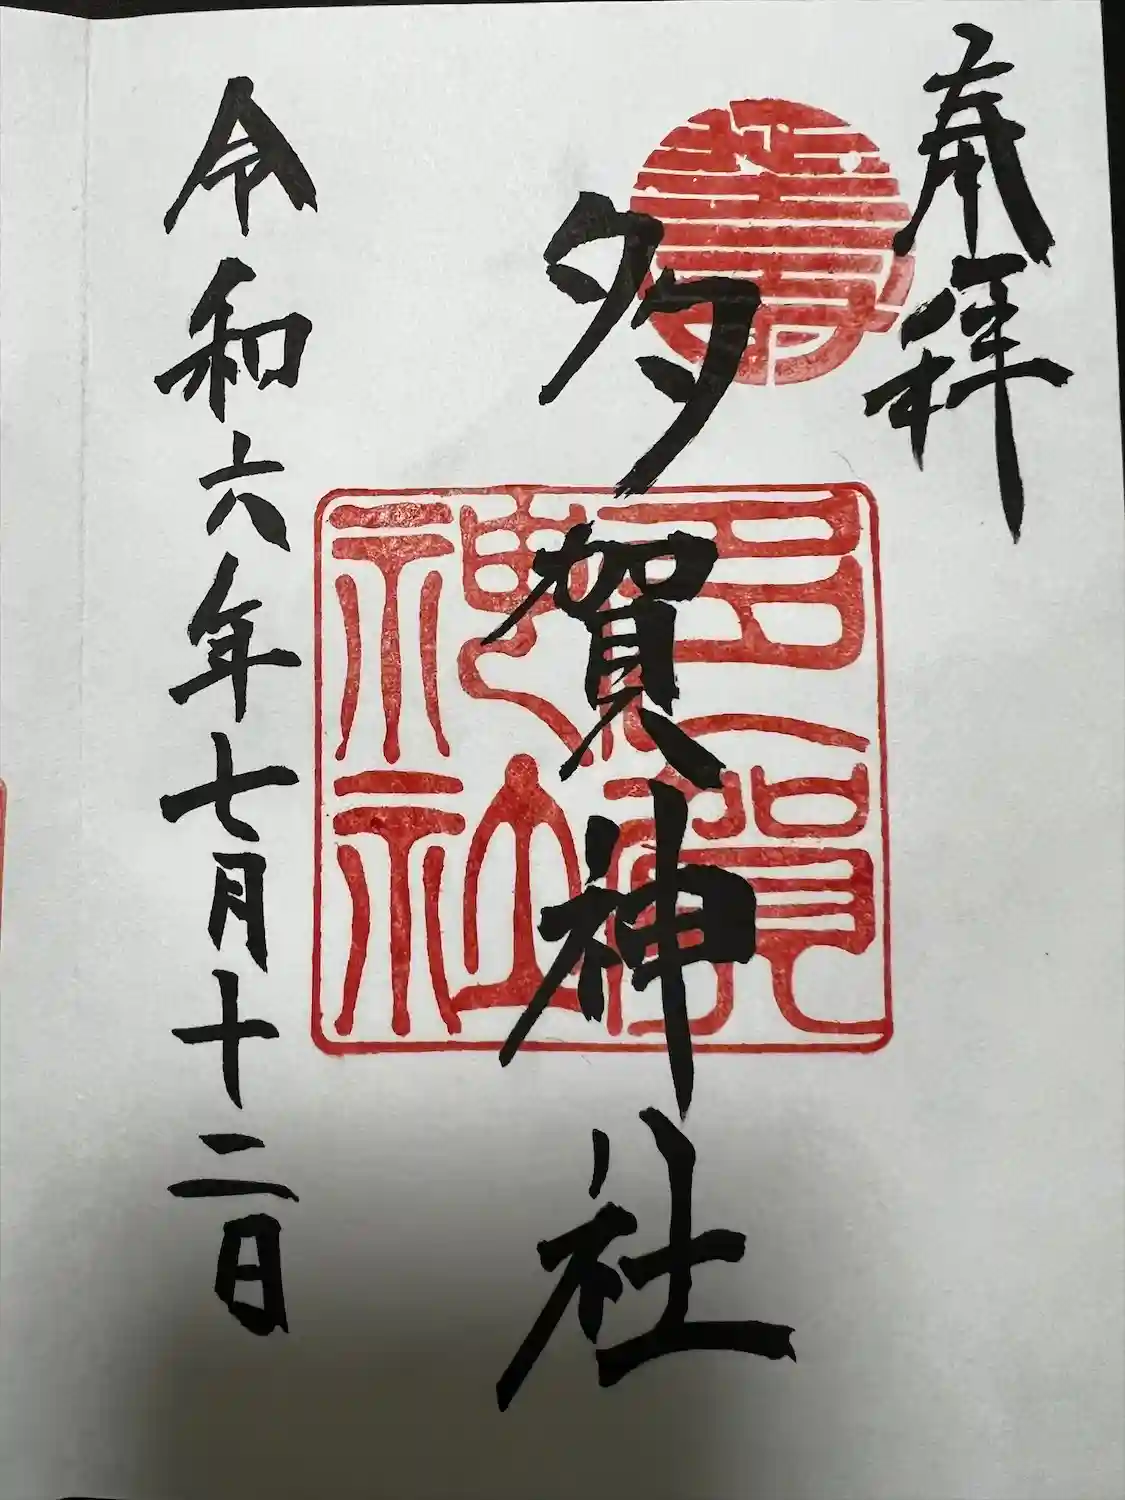 奉拝
壽
多賀神社
多賀神社
令和六年七月十二日